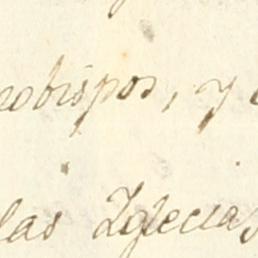 robispos, y
las Iglecias